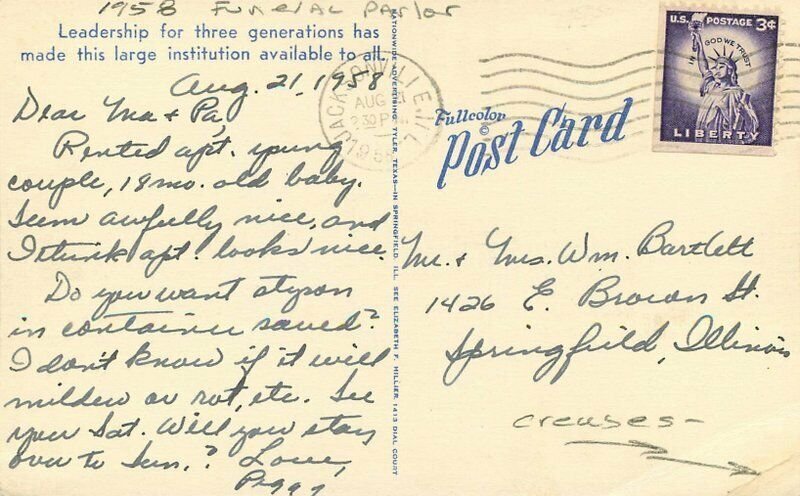 1958 Funeral Parlor
Leadership for three generations has
made this large institution available to all.
Aug. 21, 1958
Dear Ma & Pa,
Rented apt. young
couple, 18 mo. old baby.
Seem awfully nice, and
I think apt. looks nice.
Do you want styson
in container saved?
I don't know if it will
mildew or rot, etc. See
you Sat. Will you stay
over to Sun.? Love,
Peggy
NATIONWIDE ADVERTISING, TYLER, TEXAS—IN SPRINGFIELD, ILL. SEE ELIZABETH F. HILLIER, 1413 DIAL COURT
JACKSONVILLE, ILL.
AUG
2 30 PM
1958
Fullcolor
©
Post Card
U.S. POSTAGE 3¢
IN GOD WE TRUST
LIBERTY
Mr. & Mrs. Wm. Bartlett
1426 E. Brown St.
Springfield, Illinois
creases-